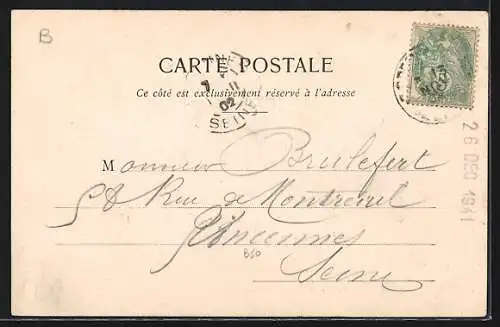 B
CARTE POSTALE
Ce côté est exclusivement réservé à l'adresse
7
02
SEINE
26 DEC 1941
Monsieur Brulefert
58 Rue de Montreuil
Vincennes
Seine
B50